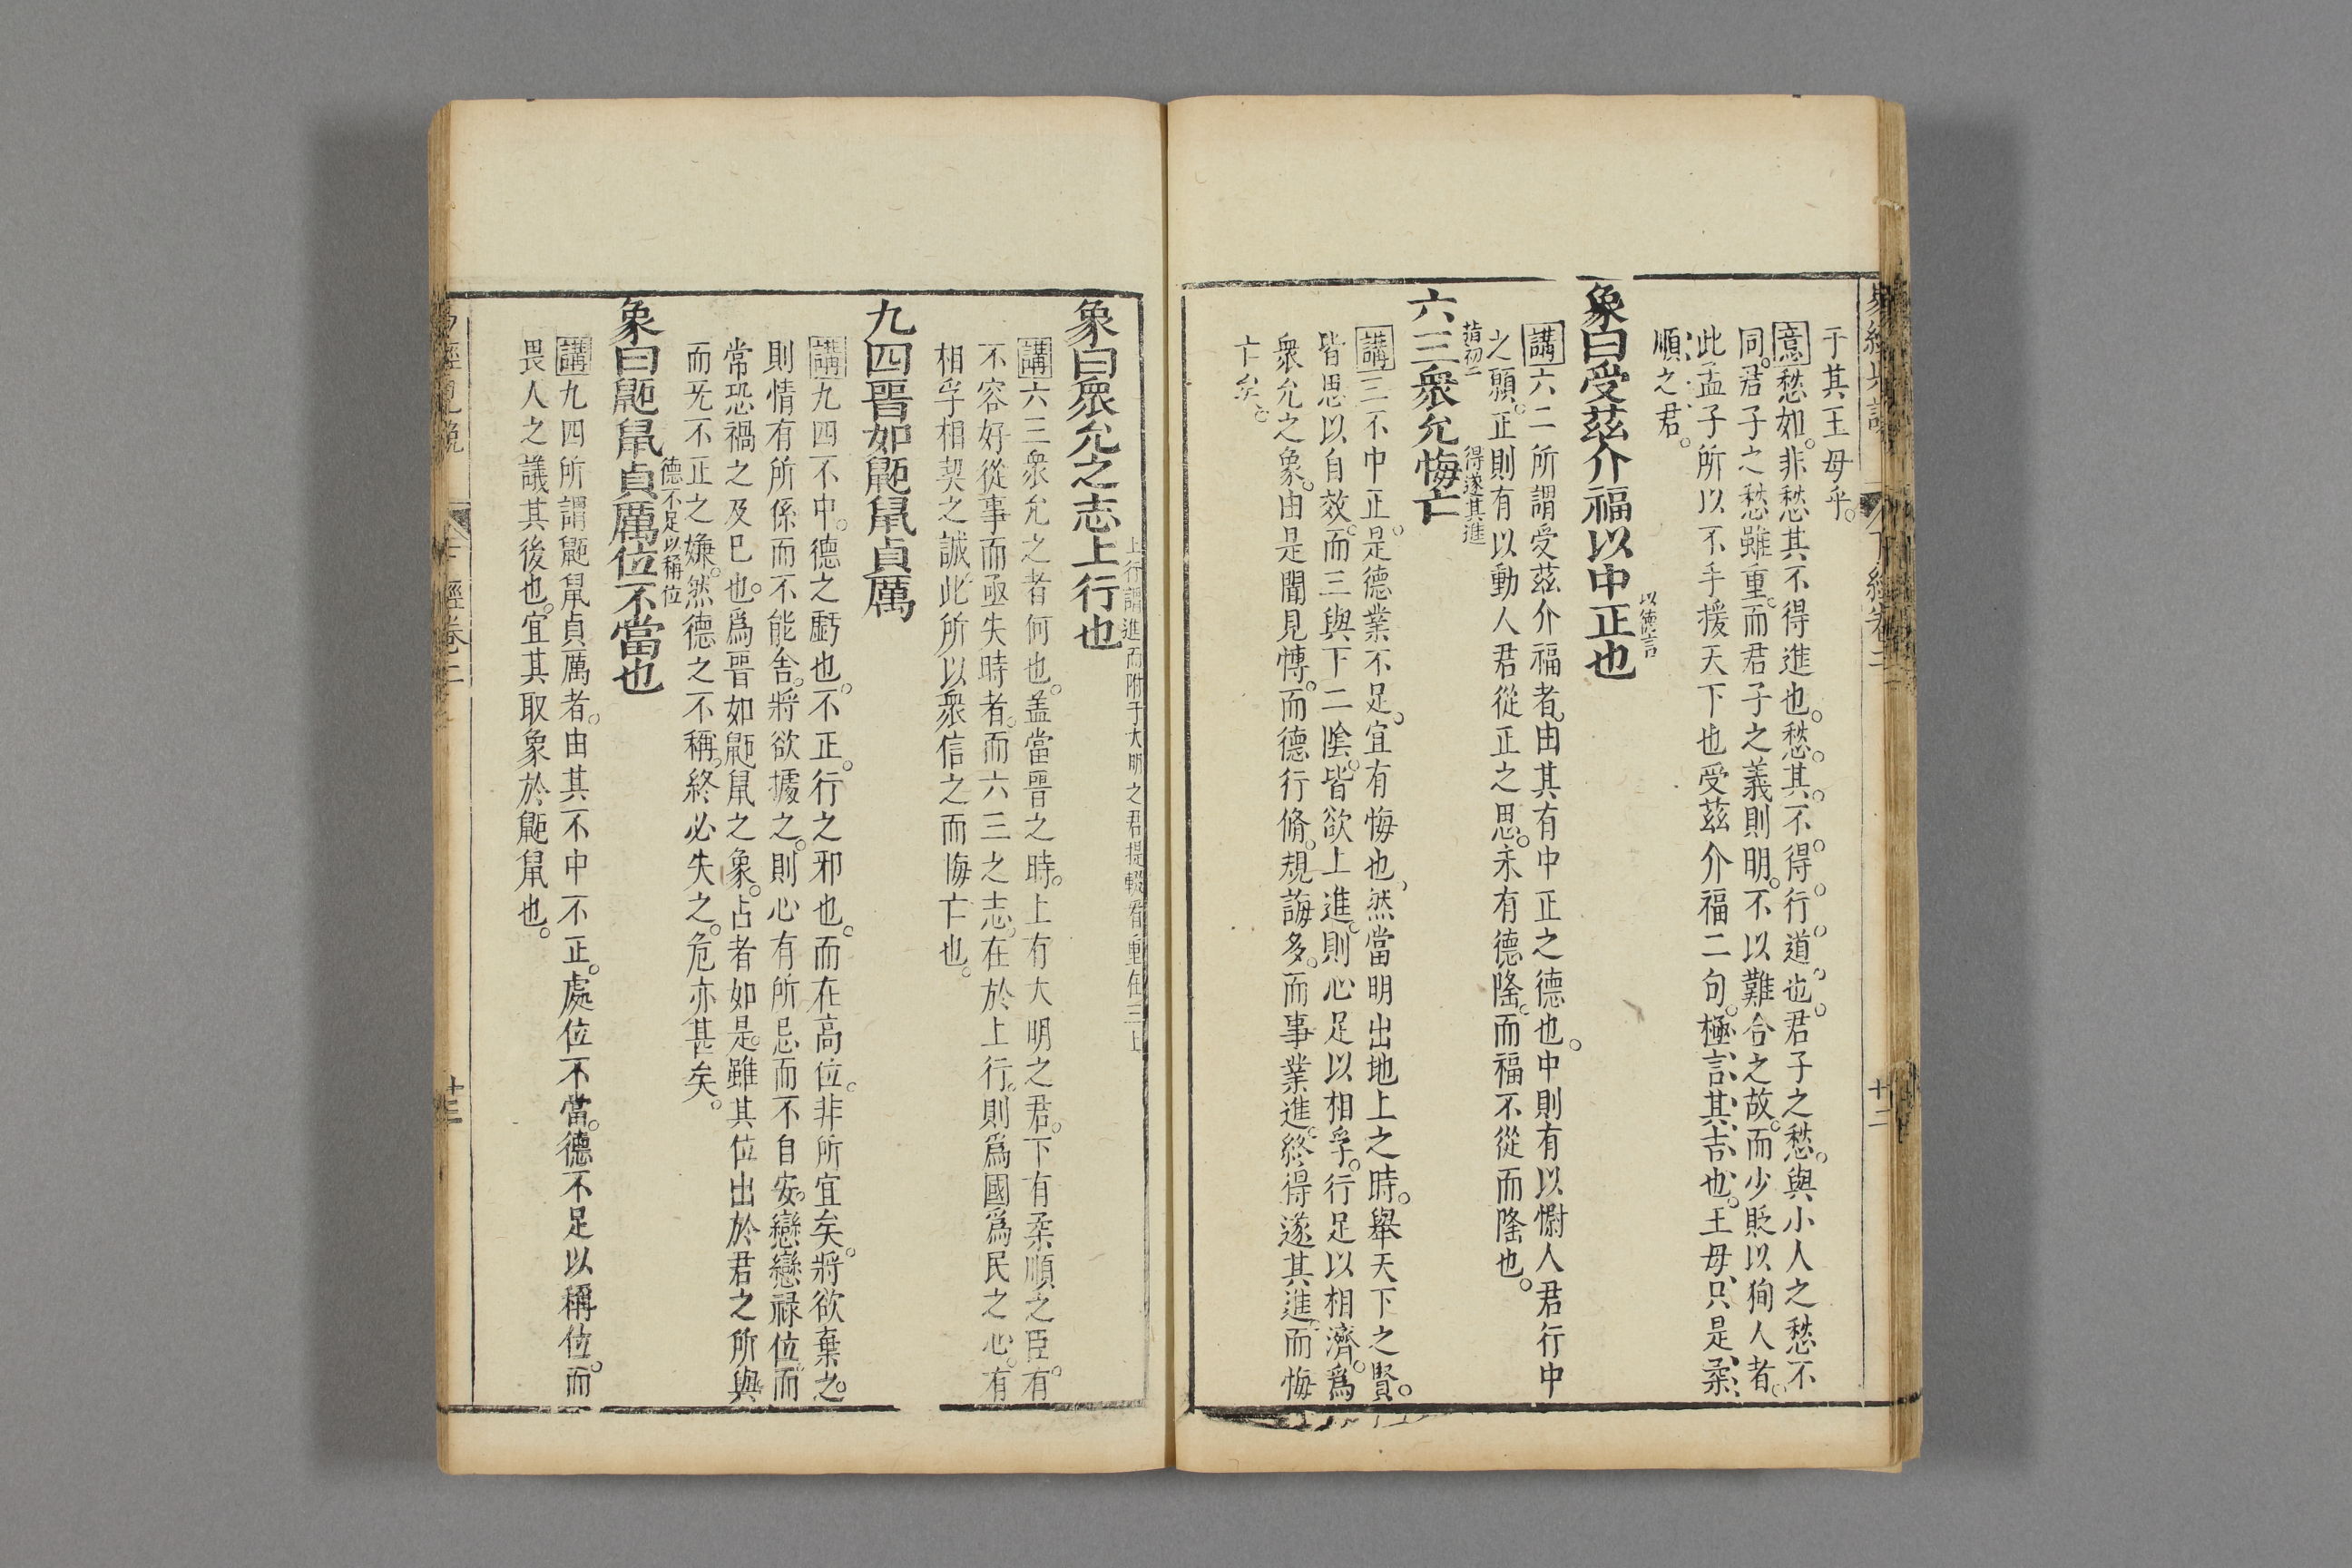 于其王母乎。
意愁如。非愁其不得進也。愁。其。不。得。行。道。也。君子之愁。與小人之愁不
同。君子之愁雖重。而君子之義則明。不以難合之故。而少貶以狥人者。
此孟子所以不手援天下也受茲介福二句。極言其吉也。王母只是柔
順之君。
以德言
象曰受茲介福以中正也
講六二所謂受茲介福者。由其有中正之德也。中則有以慰人君行中
之願。正則有以動人君從正之思。未有德隆。而福不從而隆也。
指初二　得遂其進
六三衆允悔亡
講三不中正。是德業不足。宜有悔也。然當明出地上之時。舉天下之賢。
皆思以自效。而三與下二陰。皆欲上進。則心足以相孚。行足以相濟。爲
衆允之象。由是聞見博。而德行脩。規誨多。而事業進。終得遂其進。而悔
亡矣。
上行謂進而附于大明之君提輟
象曰衆允之志上行也
講六三衆允之者何也。盖當晋之時。上有大明之君。下有柔順之臣。有
不容好從事而亟失時者。而六三之志。在於上行。則爲國爲民之心。有
相孚相契之誠。此所以衆信之而悔亡也。
九四晋如鼫鼠貞厲
講九四不中。德之虧也。不正。行之邪也。而在高位。非所宜矣。將欲棄之。
則情有所係而不能舍。將欲據之。則心有所忌而不自安。戀戀禄位。而
常恐禍之及已也。爲晋如鼫鼠之象。占者如是。雖其位出於君之所與
而旡不正之嫌。然德之不稱。終必失之。危亦甚矣。
德不足以稱位
象曰鼫鼠貞厲位不當也
講九四所謂鼫鼠貞厲者。由其不中不正。處位不當。德不足以稱位。而
畏人之議其後也。宜其取象於鼫鼠也。